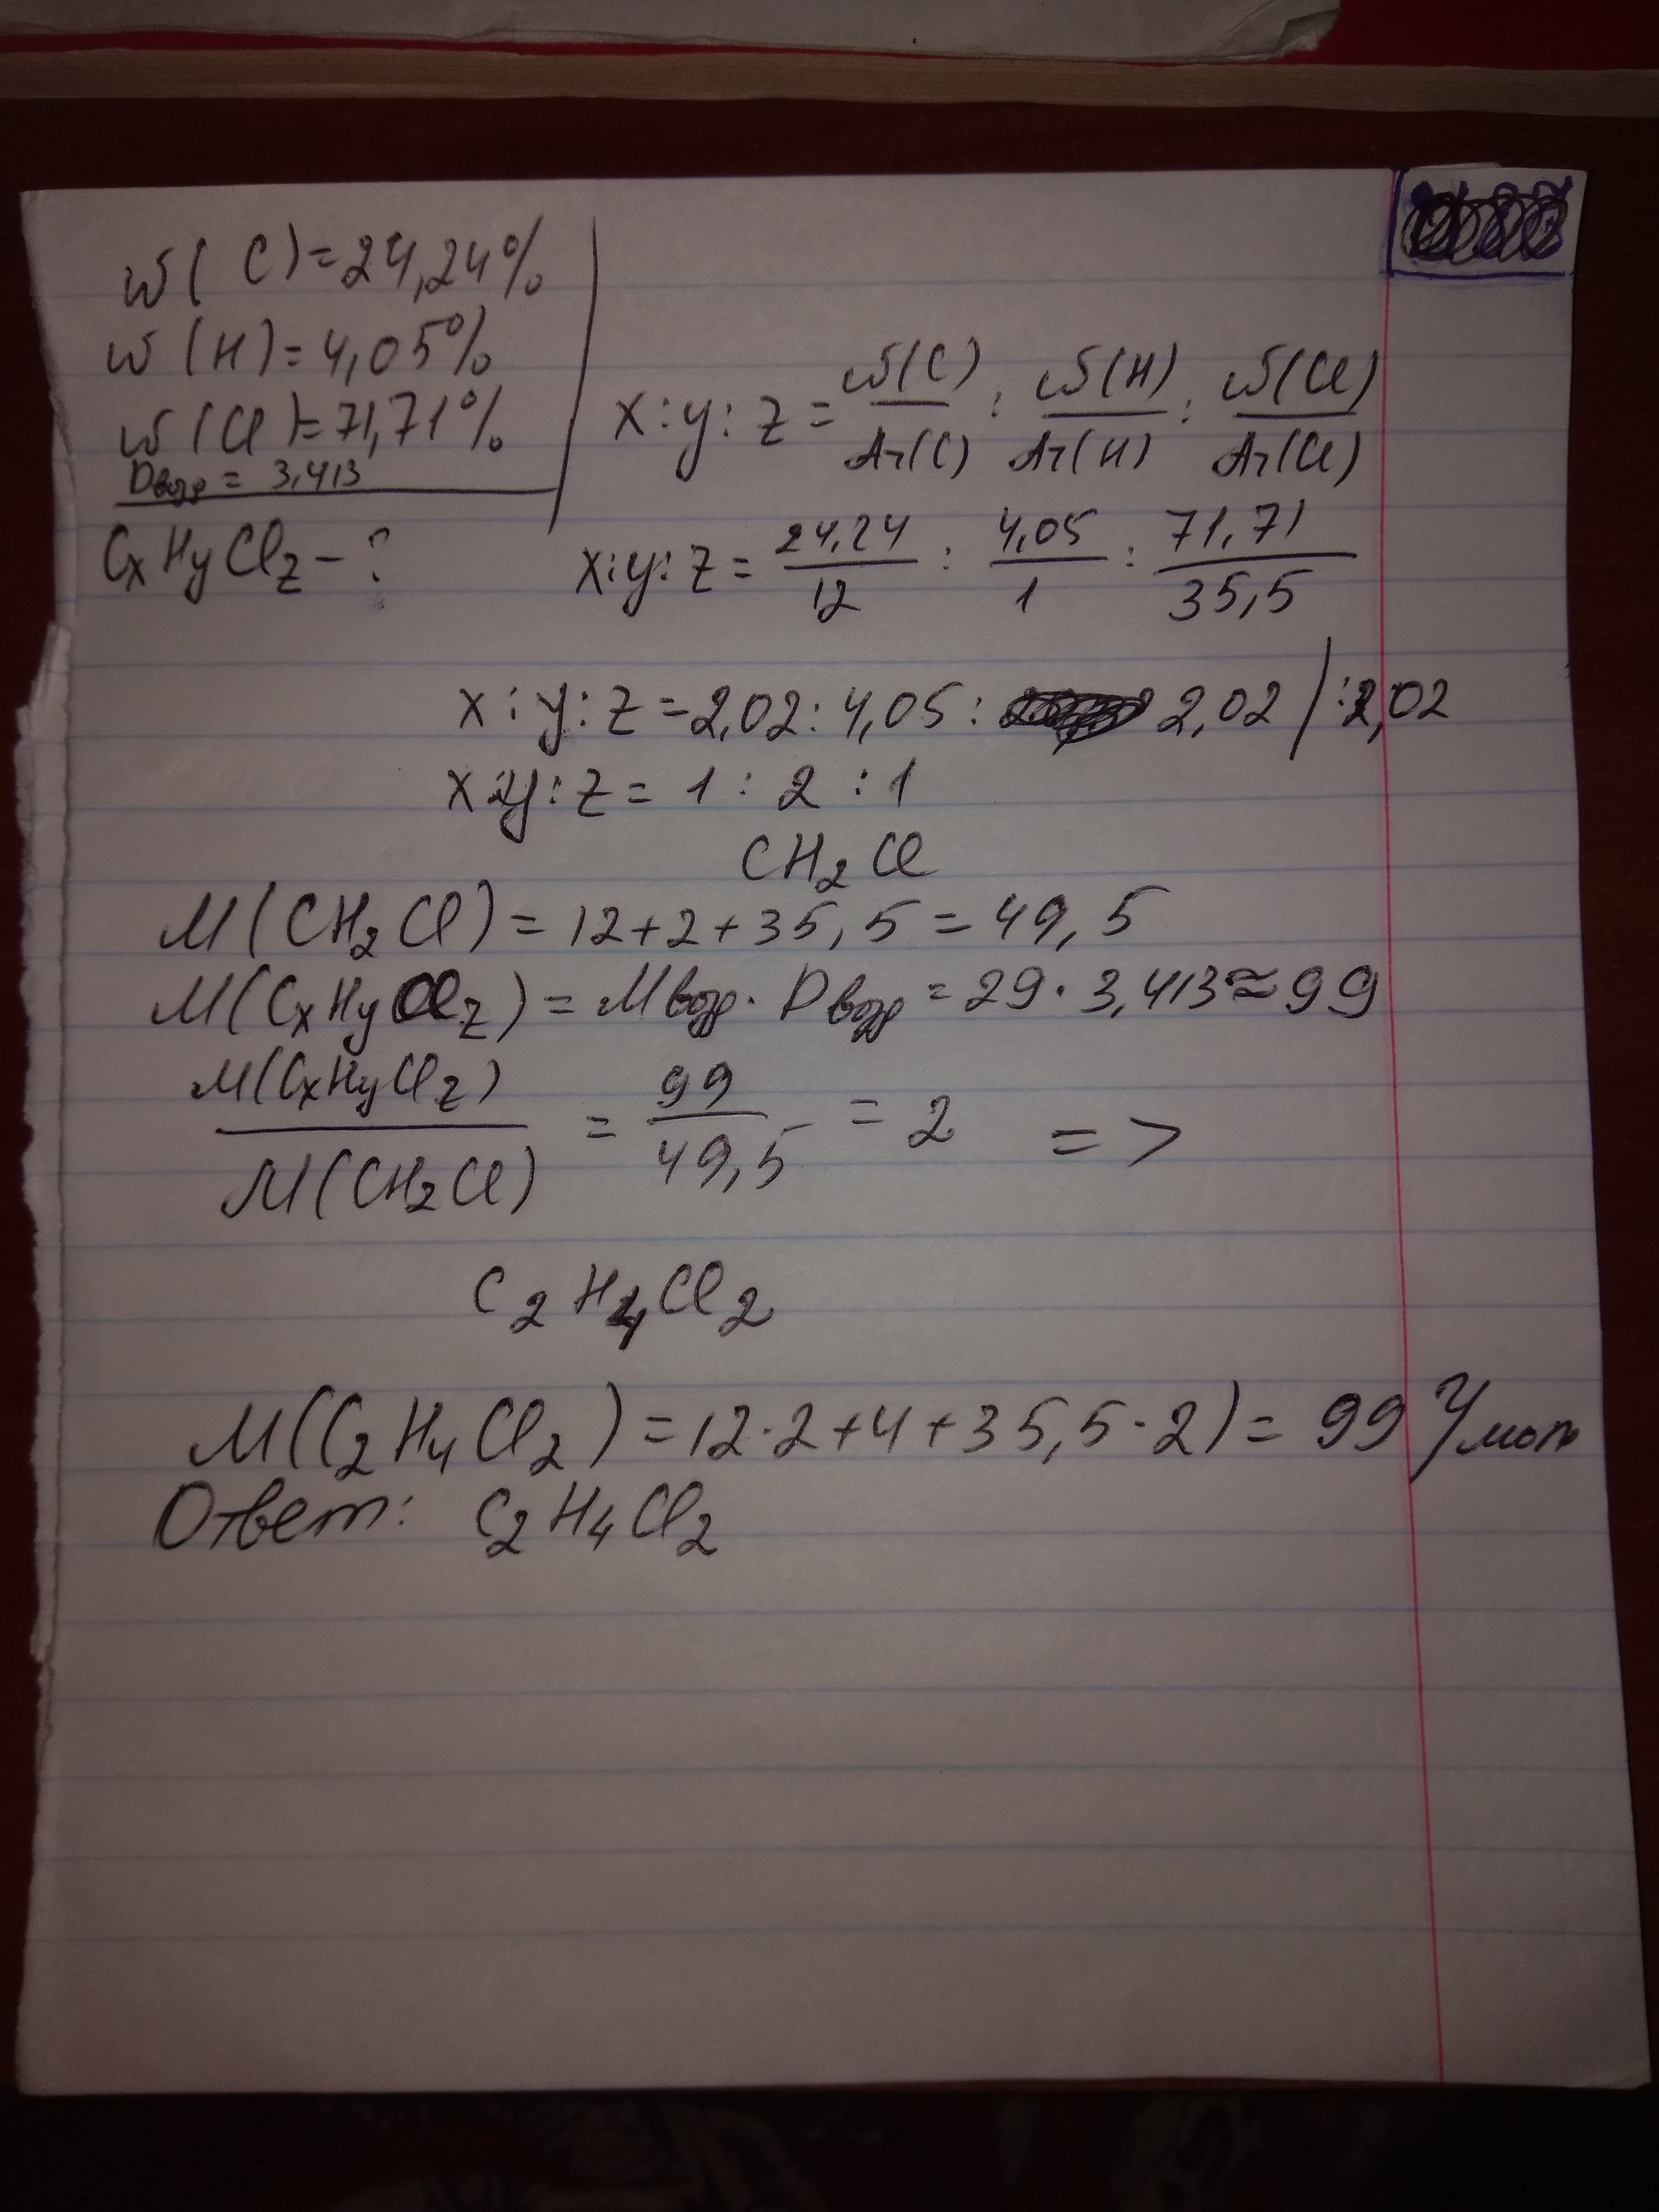 w(C)=24,24%
w(H)=4,05%
w(Cl)=71,71%
Dвозд = 3,413
CxHyClz - ?
x:y:z = w(C)/Ar(C) : w(H)/Ar(H) : w(Cl)/Ar(Cl)
x:y:z = 24,24/12 : 4,05/1 : 71,71/35,5
x:y:z = 2,02 : 4,05 : 2,02 | :2,02
x:y:z = 1 : 2 : 1
CH₂Cl
M(CH₂Cl) = 12+2+35,5 = 49,5
M(CxHyClz) = Mвозд · Dвозд = 29 · 3,413 ≈ 99
M(CxHyClz)/M(CH₂Cl) = 99/49,5 = 2 =>
C₂H₄Cl₂
M(C₂H₄Cl₂) = 12·2+4+35,5·2) = 99 г/моль
Ответ: C₂H₄Cl₂